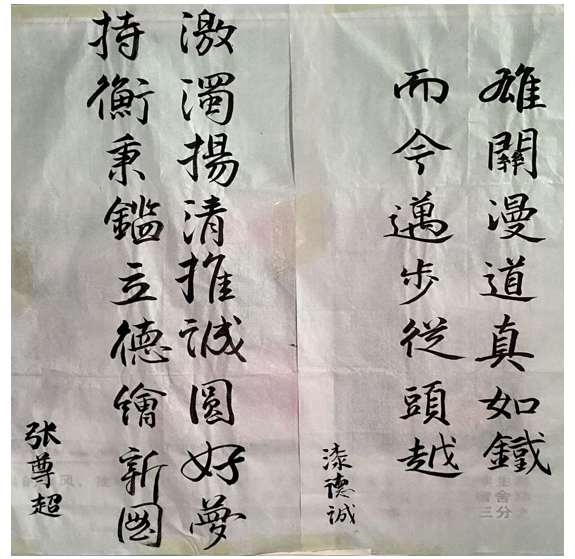 雄關漫道真如鐵
而今邁步從頭越
漆德诚
激濁揚清推誠圓好夢
持衡秉鑑立德繪新圖
张尊超